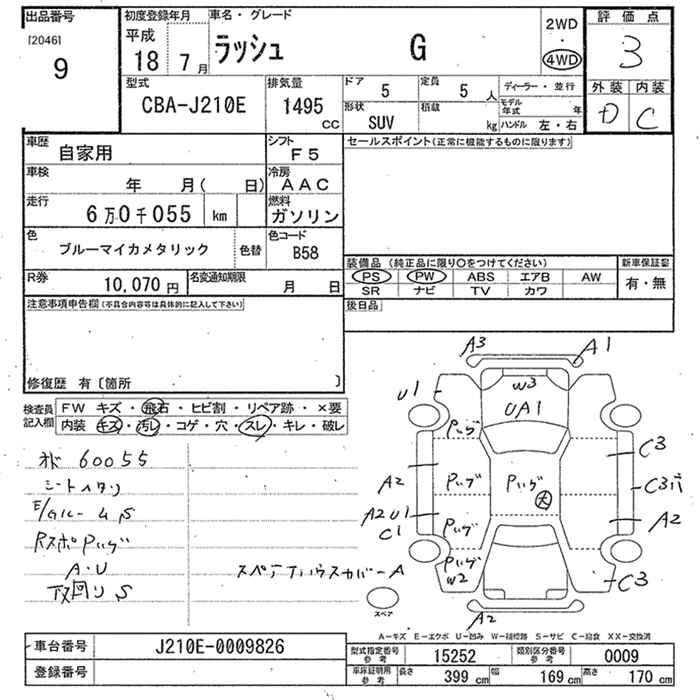 出品番号 初度登録年月 車名・グレード 2WD ・ 4WD 評価点
[2046] 9 平成 18 7月 ラッシュ G 3
型式 排気量 ドア 定員 ディーラー・並行 外装 内装
CBA-J210E 1495 CC 5 5 人 モデル年式 年 D C
形状 SUV 積載 kg ハンドル 左・右
車歴 自家用 シフト F5 セールスポイント(正常に機能するものに限ります)
車検 年 月( 日) 冷房 AAC
走行 6万0千055 km 燃料 ガソリン
色 ブルーマイカメタリック 色替 色コード B58
装備品 (純正品に限り○をつけてください) 新車保証書
PS PW ABS エアB AW 有・無
SR ナビ TV カワ
R券 10,070円 名変通知期限 月 日
後日品
注意事項申告欄(不具合内容等は具体的に記入して下さい)
修復歴 有〔箇所 〕
検査員記入欄 FW キズ・飛石・ヒビ割・リペア跡・×要
内装 キズ・汚レ・コゲ・穴・スレ・キレ・破レ
A3 A1
U1 W3
UA1
Pいグ
C3
Pいグ Pいグ 大
A2 C3
A2 U1 A2
C1 Pいグ
Pいグ
W2 C3
A2
60055
シートイタリ
Rスポ Pいグ
A・U
下回リ S
スペアTハウスカバーA
スペア
A―キズ E―エクボ U―凹み W―補修跡 S―サビ C―腐食 XX―交換済
車台番号 J210E-0009826
登録番号
型式指定番号 参考 15252 類別区分番号 参考 0009
車庫証明用 参考 長さ 399 cm 幅 169 cm 高さ 170 cm